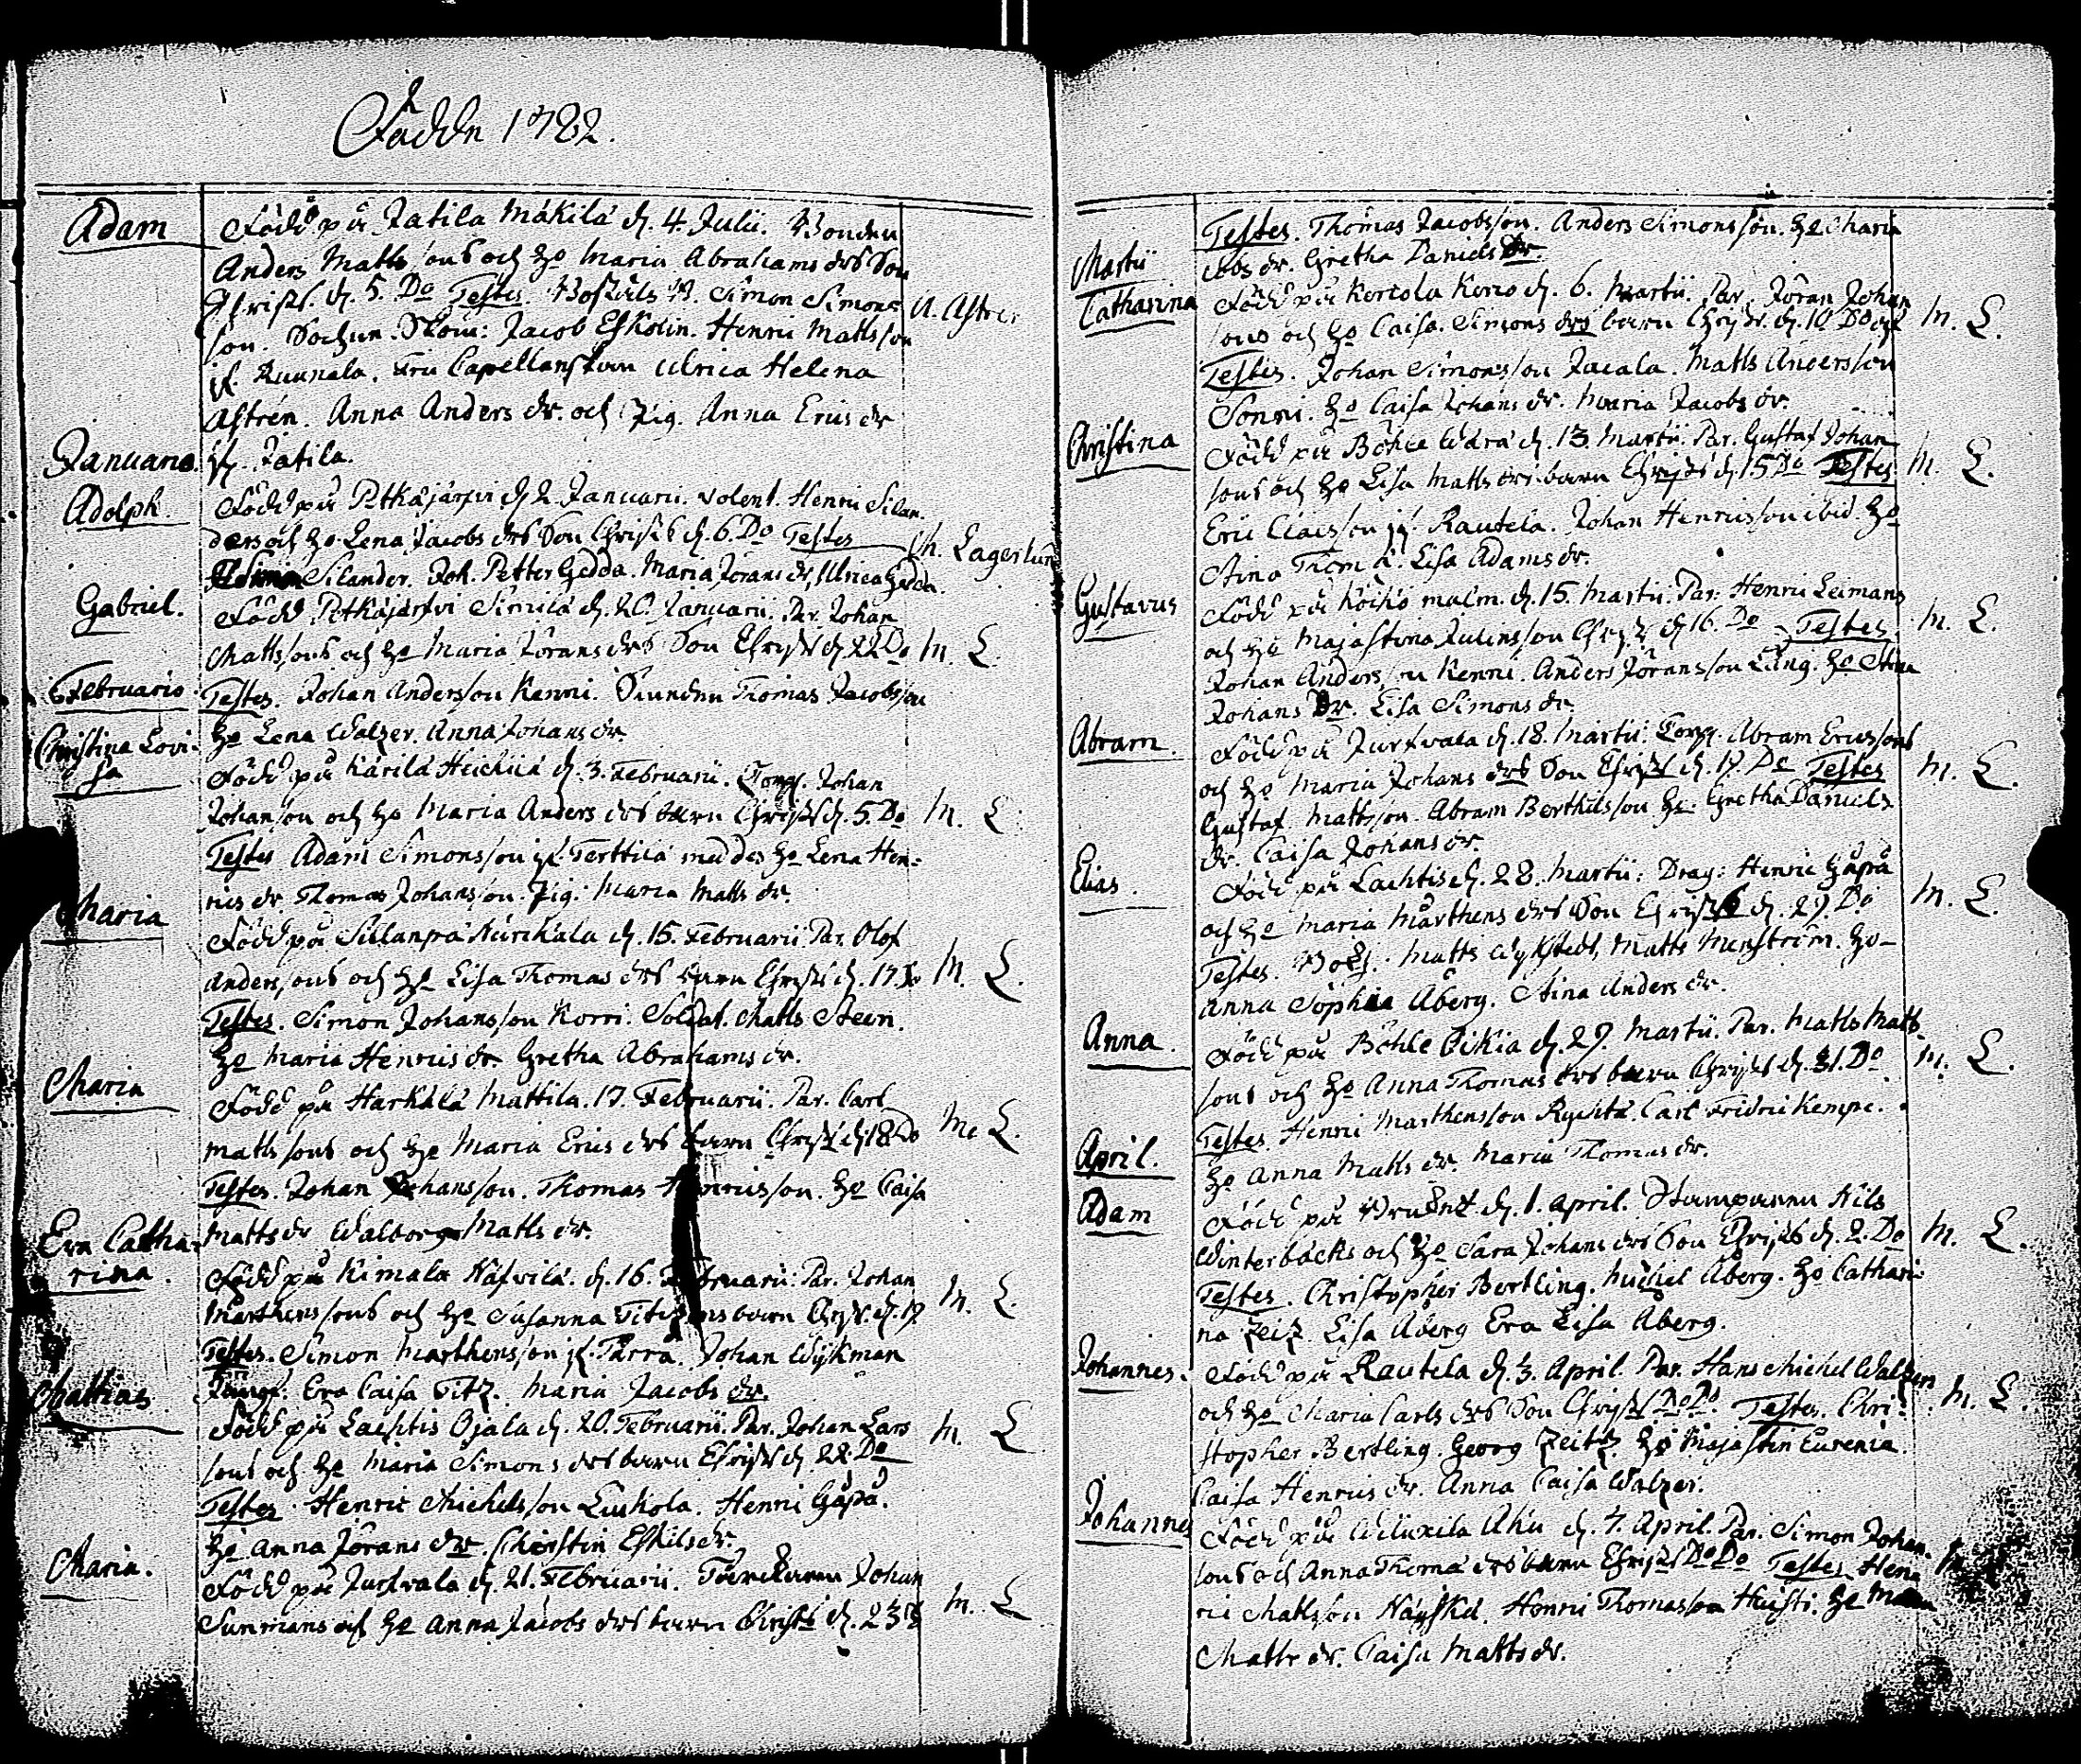 Födde 1782.
Adam
Född på Jatila Mäkilä d. 4. Julii. Bonden
Anders Matts sons och Ho Maria Abrahams drs Son
Christ. d. 5. Do Testes Simon Simons
son. Jacob Eskolin. Henric Mattsson
Ruunala. Fru Capellanskan Ulrica Helena
Astrén. Anna Anders dr. och Pig. Anna Erics dr
fr. Jatila.
A. Astrén
Januario.
Adolph
Född på Pitkäjärfvi d. 2. Januarii. Volent. Henric Silan
ders och Ho Lena Jacobs drs Son Christ d. 6. Do Testes
Silander. Joh. Petter Gedda. Maria Jörans dr, Ulrica Gedda.
M. Lagerlun
Gabriel.
Född Pitkäjärfvi Similä d. 20. Januarii. Par. Johan
Matts sons och Ho Maria Jörans drs Son Christ d. 22 Do
M. L.
Februario.
Testes. Johan Andersson Kenni. Thomas Jacobsson
Ho Lena Walzer. Anna Johans dr.
Christina Lovi-
sa
Född på Kärilä Heickilä d. 3. Februarii. Torp. Johan
Johansson och Ho Maria Anders drs barn Christ d. 5. Do
M. L.
Testes Adam Simonsson fr. Terttilä med des Ho Lena Hen-
rics dr. Thomas Johansson. Pig. Maria Matts dr.
Maria
Född på Sillanpä Kurckala d. 15. Februarii Par. Olof
Anders sons och Ho Lisa Thomas drs barn Christ d. 17 Do
M. L.
Testes. Simon Johansson Korri. Soldat. Matts Steen.
Ho Maria Henrics dr. Gretha Abrahams dr.
Maria
Född på Harkälä Mattila. 17. Februarii. Par. Carl
Matts sons och Ho Maria Erics drs barn Christ d. 18 Do
M. L.
Testes. Johan Johansson. Thomas Henricsson. Ho Caisa
Matts dr Walborg Matts dr.
Eva Catha-
rina.
Född på Kimala Häfvilä. d. 16. Februarii. Par. Johan
Mårthens sons och Ho Susanna barn Christ. d. 17
M. L.
Testes. Simon Marthensson fr. Parra. Johan Wijkman
Jungf. Eva Caisa Titz. Maria Jacobs dr.
Matthias
Född på Lachtis Ojala d. 20. Februarii. Par. Johan Lars
sons och Ho Maria Simons drs barn Christ d. 22 Do
M. L.
Testes. Henric Michelsson Luchola. Henric Gåpå.
Ho Anna Jörans dr. Christin Eskils dr.
Maria.
Född på Jurfvala d. 21. Februarii. Johan
Sunnians och Ho Anna Jacobs drs barn Christ d. 23
M. L.
Testes. Thomas Jacobsson. Anders Simonsson. Ho Maria
Jacobs dr. Gretha Daniels dr.
Martii
Catharina
Född på Kercola Kerro d. 6. Martii. Par. Jöran Johan
sons och Ho Caisa Simons drs barn Christ. d. 10 Do
M. L.
Testes. Johan Simonsson Jacala. Matts Andersson
Sonni. Ho Caisa Johans dr. Maria Jacobs dr.
Christina
Född på Böhle Wara d. 13. Martii. Par. Gustaf Johan
sons och Ho Lisa Matts drs barn Christ d. 15 Do Testes
M. L.
Eric Claesson fr. Rautela. Johan Henricsson ibid. Ho
Stina Lisa Adams dr.
Gustavus
Född på Koiko malm. d. 15. Martii. Par. Henric Leimans
och Ho Majastina Julinsson Christ d. 16. Do Testes
M. L.
Johan Andersson Kenni. Anders Jöransson Läng. Ho Stina
Johans Dr. Lisa Simons dr.
Abram.
Född på Jurfvala d. 18. Martii. Torp. Abram Ericssons
och Ho Maria Johans drs Son Christ d. 19. Do Testes
M. L.
Gustaf Mattsson. Abram Berthilsson Ho. Gretha Daniels
dr. Caisa Johans dr.
Elias.
Född på Lachtis d. 28. Martii. Drag: Henric Gåpå
och Ho Maria Mårthens drs Son Christ d. 29. Do
M. L.
Testes. Matts Wykstedt, Matts Menström. Ho
Anna Sophia Åberg. Stina Anders dr.
Anna.
Född på Böhle Pikia d. 29. Martii. Par. Matts Matts
sons och Ho Anna Thomas drs barn Christ d. 31. Do
M. L.
Testes Henric Marthensson Rychtä. Carl Fridric Kempe.
Ho Anna Matts dr. Maria Thomas dr.
April.
Adam
Född på d. 1. April. Nils
Winterbäcks och Ho Sara Johans drs Son Christ d. 2. Do
M. L.
Testes. Christopher Bertling. Michel Åberg. Ho Cathari-
na Zeitz. Lisa Åberg Eva Lisa Åberg.
Johannes.
Född på Rautela d. 3. April. Par. Hans Michel Walzers
och Ho Maria Carls drs Son Christ Do Do Testes. Chri-
M. L.
stopher Bertling. Georg Zeitz. Ho Majastin Eurenia.
Caisa Henrics dr. Anna Caisa Walzer.
Johannes
Född på Willuxila Ahu d. 7. April. Par. Simon Johan-
sons och Anna Thoma drs barn Christ Do Do Testes Hen-
ric Mattsson Häyskä. Henric Thomasson Heisti. Ho Maria
Matts dr. Caisa Matts dr.